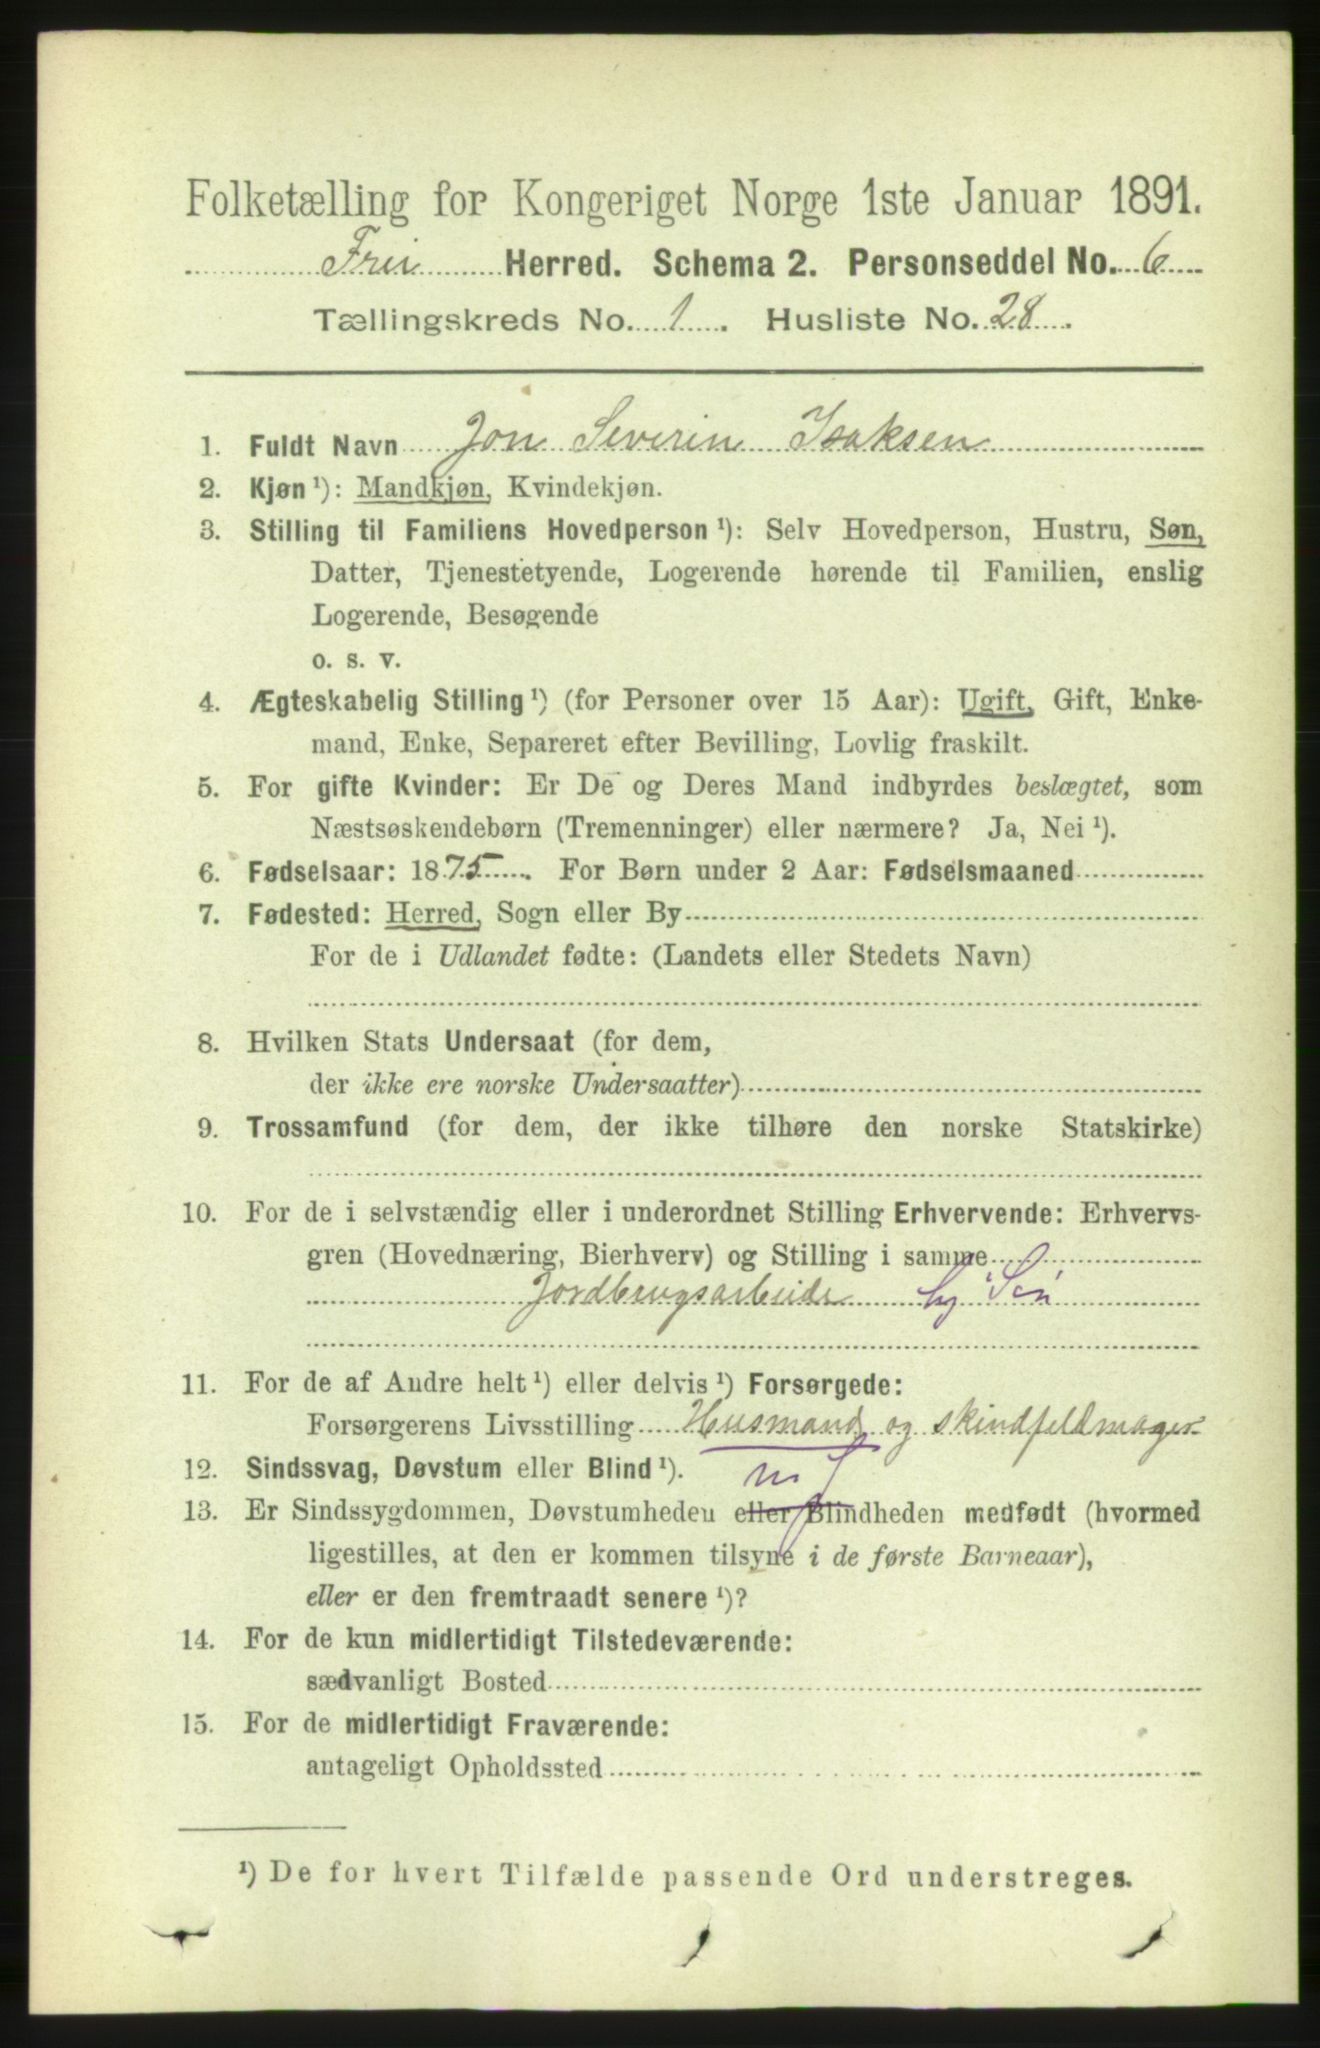 Folketælling for Kongeriget Norge 1ste Januar 1891.
Frei Herred. Schema 2. Personseddel No. 6
Tællingskreds No. 1. Husliste No. 28.
1. Fuldt Navn Jon Severin Isaksen
2. Kjøn ¹): Mandkjøn, Kvindekjøn.
3. Stilling til Familiens Hovedperson ¹): Selv Hovedperson, Hustru, Søn,
Datter, Tjenestetyende, Logerende hørende til Familien, enslig
Logerende, Besøgende
o. s. v.
4. Ægteskabelig Stilling ¹) (for Personer over 15 Aar): Ugift, Gift, Enke-
mand, Enke, Separeret efter Bevilling, Lovlig fraskilt.
5. For gifte Kvinder: Er De og Deres Mand indbyrdes beslægtet, som
Næstsøskendebørn (Tremenninger) eller nærmere? Ja, Nei ¹).
6. Fødselsaar: 1875. For Børn under 2 Aar: Fødselsmaaned
7. Fødested: Herred, Sogn eller By
For de i Udlandet fødte: (Landets eller Stedets Navn)
8. Hvilken Stats Undersaat (for dem,
der ikke ere norske Undersaatter)
9. Trossamfund (for dem, der ikke tilhøre den norske Statskirke)
10. For de i selvstændig eller i underordnet Stilling Erhvervende: Erhvervs-
gren (Hovednæring, Bierhverv) og Stilling i samme
Jordbrugsarbeide
11. For de af Andre helt ¹) eller delvis ¹) Forsørgede:
Forsørgerens Livsstilling Husmand og skindfeldmager
12. Sindssvag, Døvstum eller Blind ¹).
13. Er Sindssygdommen, Døvstumheden eller Blindheden medfødt (hvormed
ligestilles, at den er kommen tilsyne i de første Barneaar),
eller er den fremtraadt senere ¹)?
14. For de kun midlertidigt Tilstedeværende:
sædvanligt Bosted
15. For de midlertidigt Fraværende:
antageligt Opholdssted
¹) De for hvert Tilfælde passende Ord understreges.